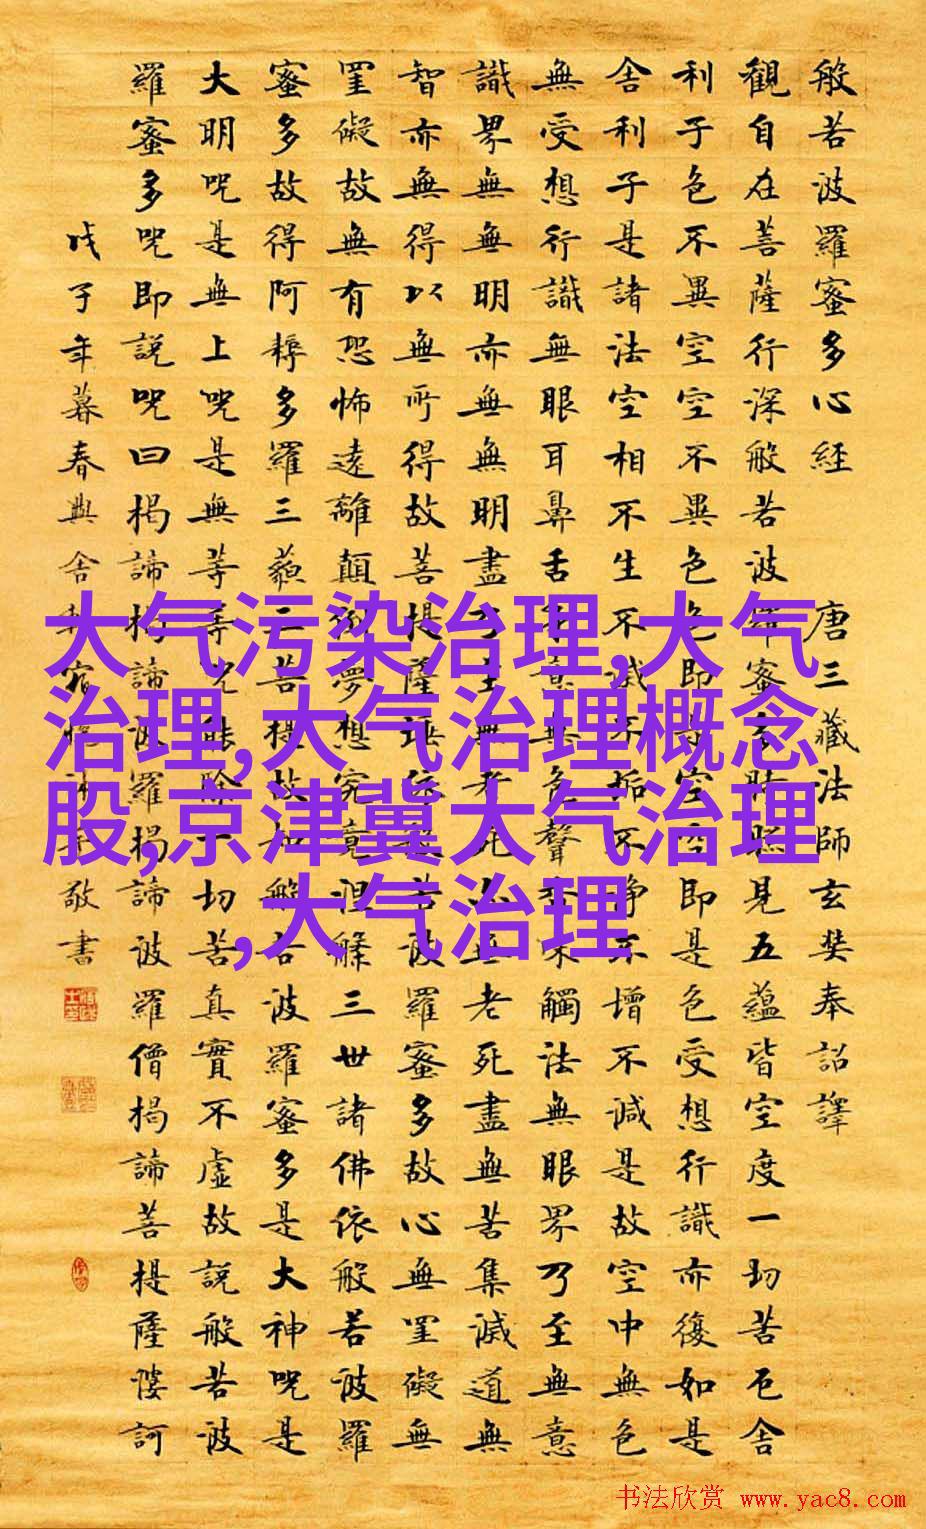 大气污染治理,大气
治理,大气治理概念
股,京津冀大气治理
,大气治理
般若波羅蜜多心經 唐三藏法師玄奘奉詔譯
觀自在菩薩行深般若波羅蜜多時照見五蘊皆空度一切苦厄舍
利子色不異空空不異色色即是空空即是色受想行識亦復如是
舍利子是諸法空相不生不滅不垢不淨不增不減是故空中無色
無受想行識無眼耳鼻舌身意無色聲香味觸法無眼界乃至無意
識界無無明亦無無明盡乃至無老死亦無老死盡無苦集滅道無
智亦無得以無所得故菩提薩埵依般若波羅蜜多故心無罣礙無
罣礙故無有恐怖遠離顛倒夢想究竟涅槃三世諸佛依般若波羅
蜜多故得阿耨多羅三藐三菩提故知般若波羅蜜多是大神咒是
大明咒是無上咒是無等等咒能除一切苦真實不虛故說般若波
羅蜜多咒即說咒曰揭諦揭諦波羅揭諦波羅僧揭諦菩提薩婆訶
戊子年暮春 敬書
书法欣赏 www.yac8.com